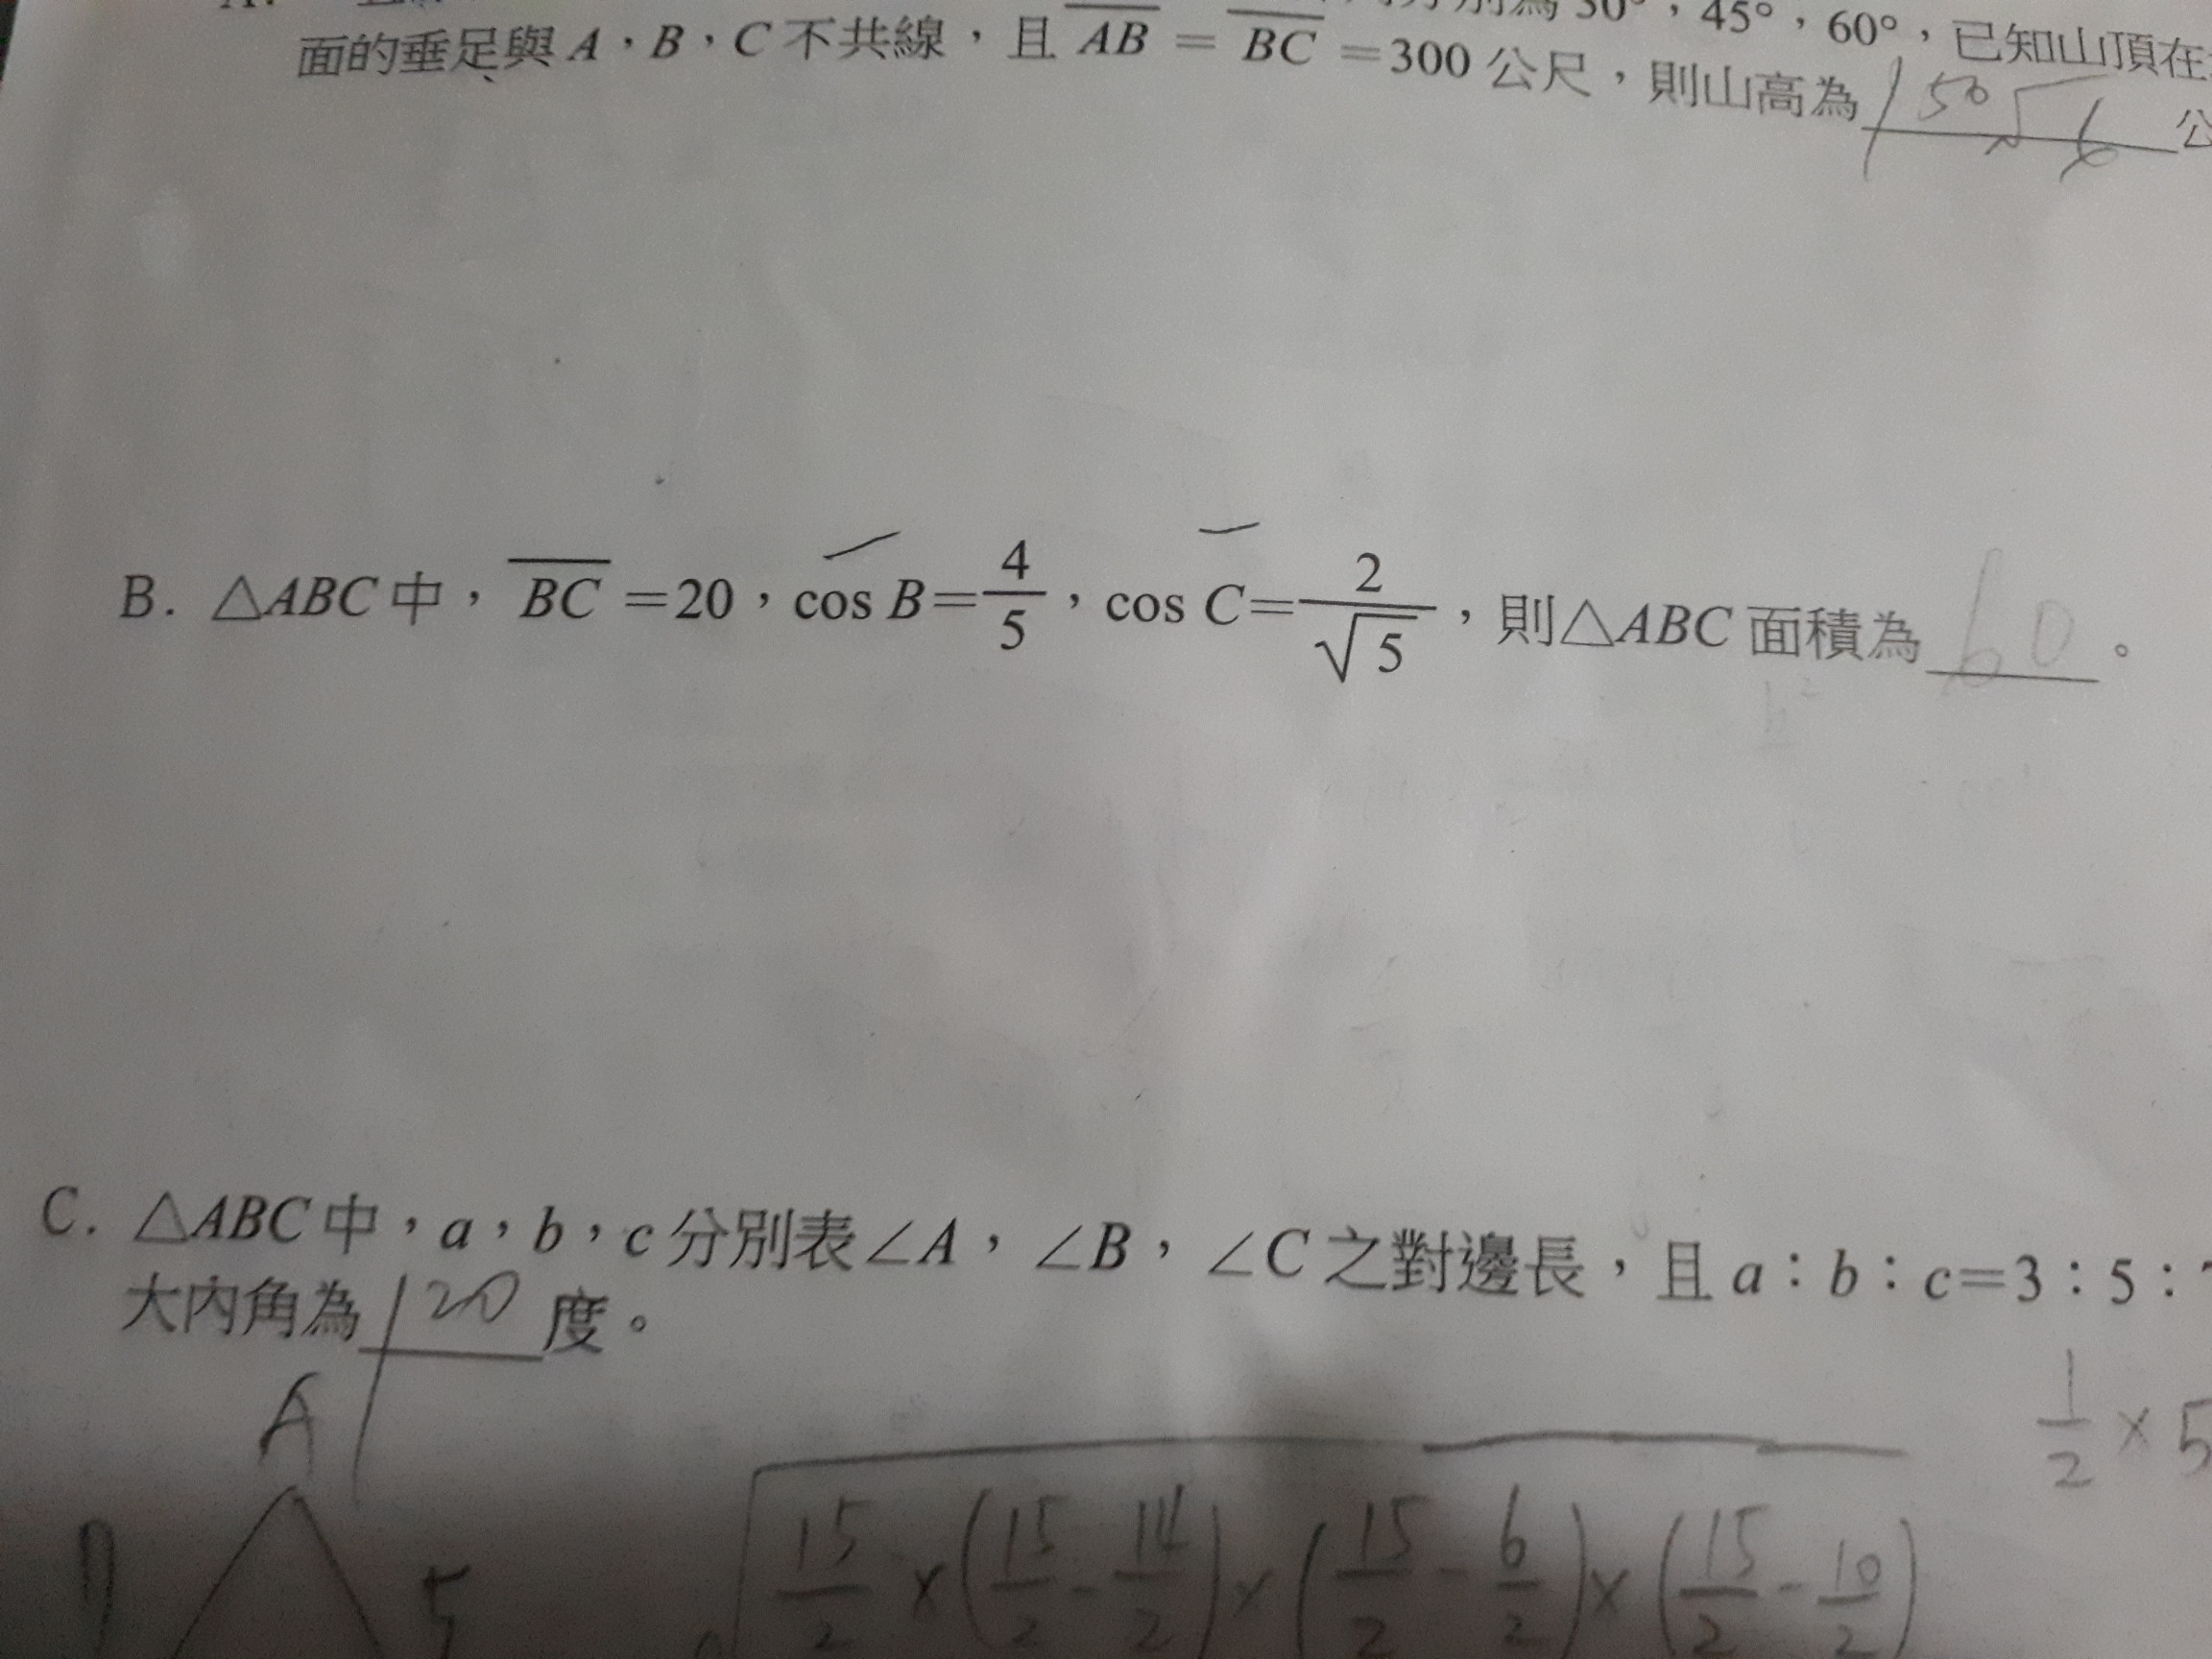 30°，45°，60°，已知山頂在
面的垂足與 A，B，C 不共線，且 AB = BC =300 公尺，則山高為 150√6 公
B. △ABC 中， BC =20，cos B=4/5，cos C=2/√5，則△ABC 面積為 60 。
C. △ABC 中，a，b，c 分別表∠A，∠B，∠C 之對邊長，且 a：b：c=3：5：
大內角為 120 度。
A
1/2 × 5
5
√ 15/2 × (15/2 - 14/2) × (15/2 - 6/2) × (15/2 - 10/2)